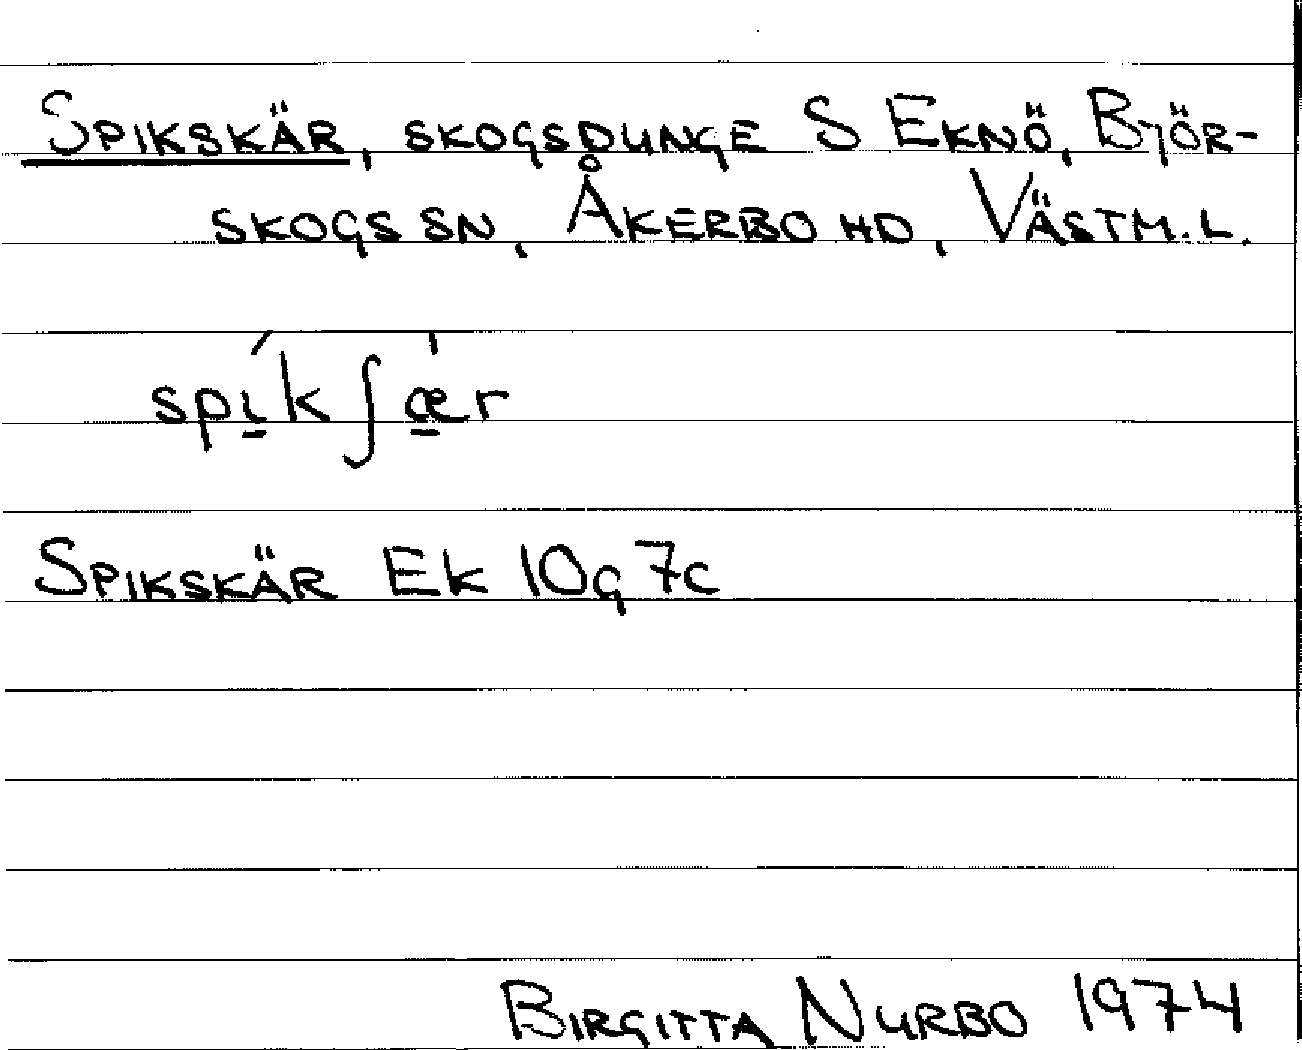 SPIKSKÄR, SKOGSDUNGE S EKNÖ, BJÖR-
SKOGS SN, ÅKERBO HD, VÄSTM. L.
spı̱́kʃæ̱̍r
SPIKSKÄR EK 10g 7c
BIRGITTA NURBO 1974